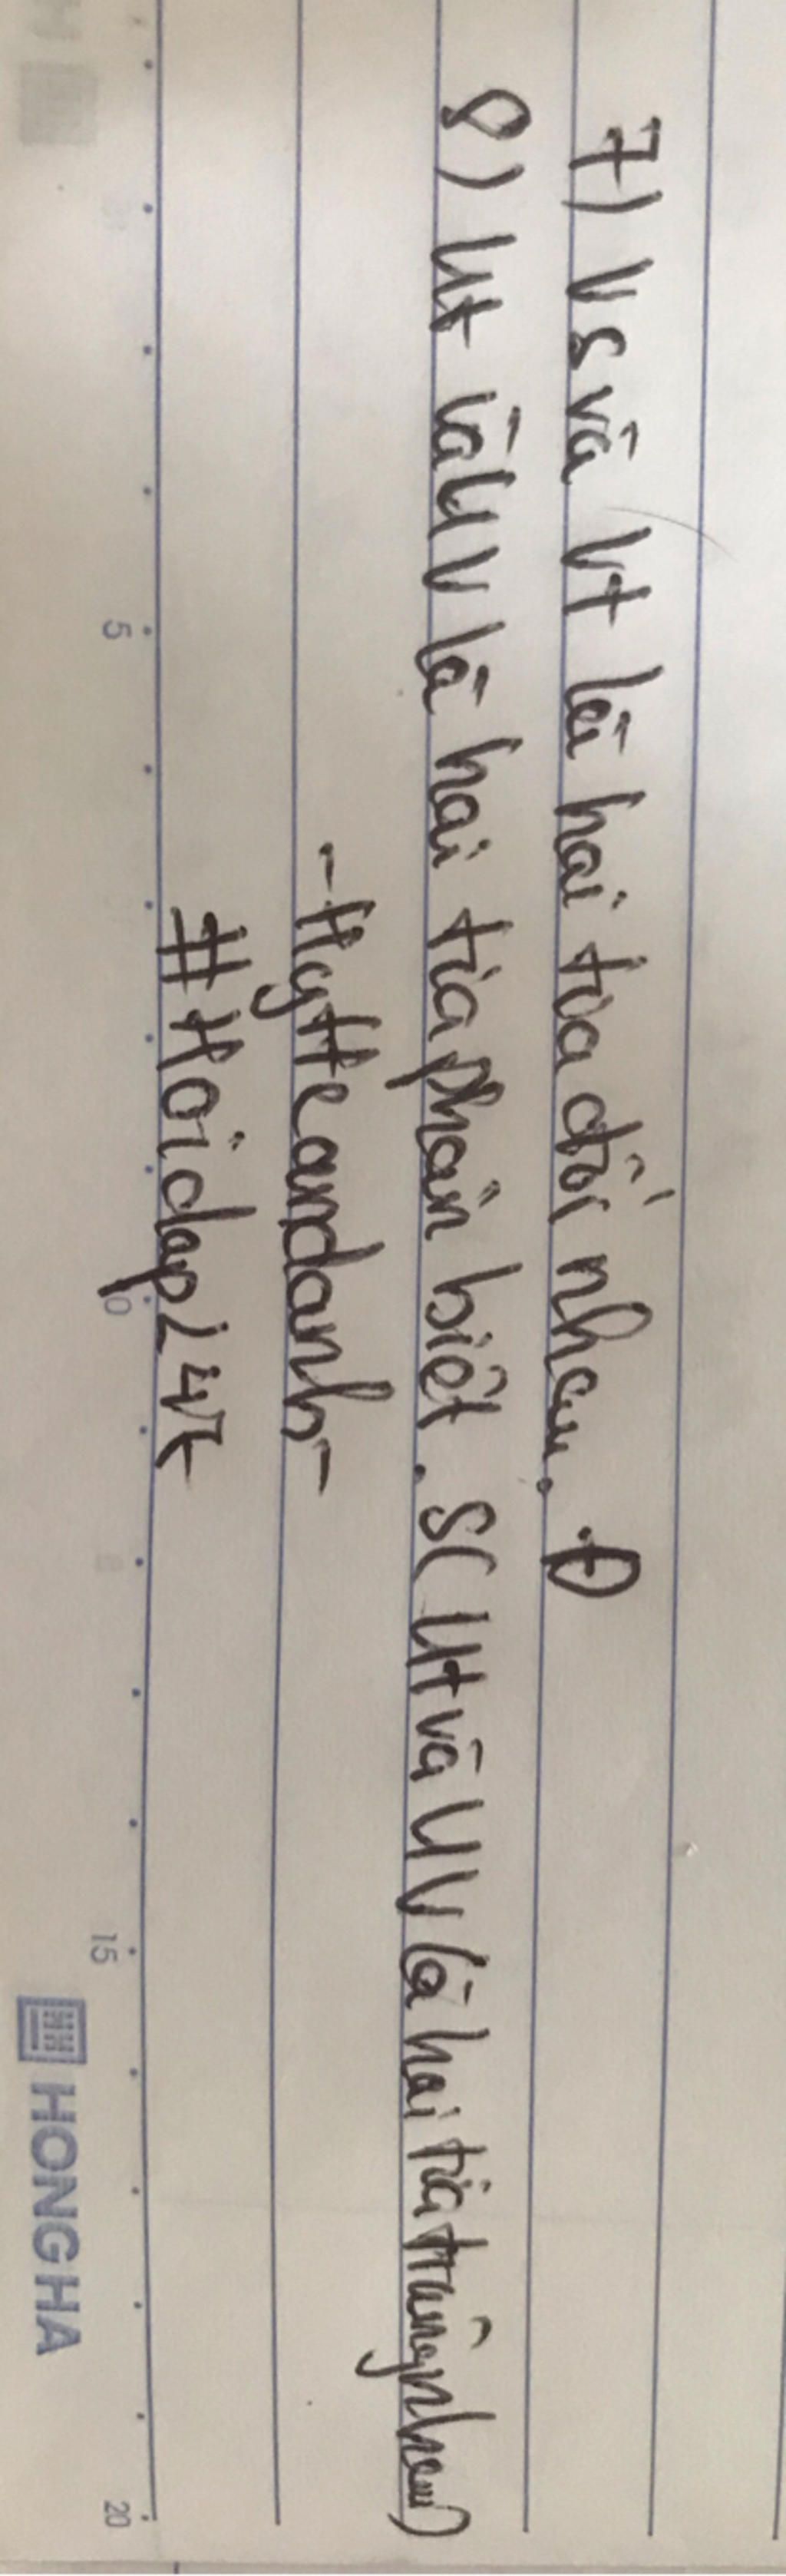 7) Vs và Vt là hai tia đối nhau. Đ
8) Ut và UV là hai tia phân biệt. S( Ut và UV là hai tia trùng nhau)
-HyHeandanh-
#Hoidap247
5
10
15
20
HONG HA